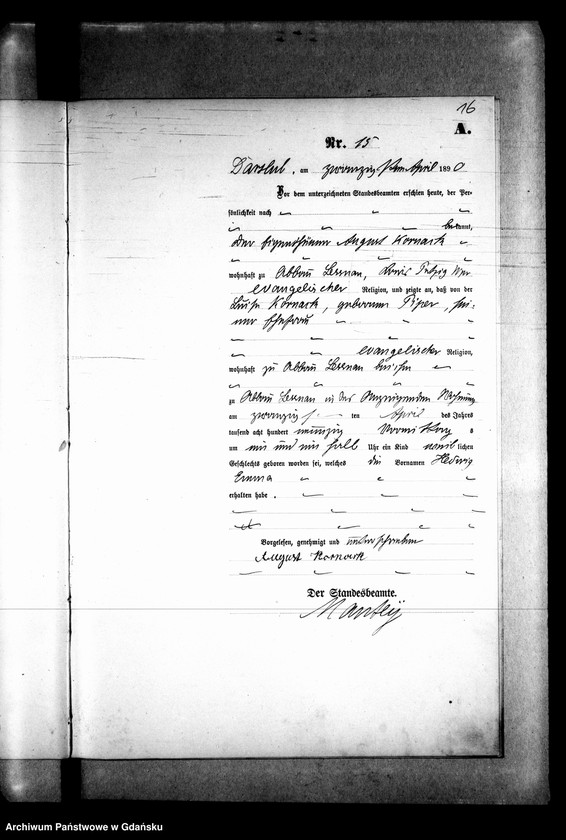 16
A.
Nr. 15
Darslub, am zwanzigsten April 1890
Vor dem unterzeichneten Standesbeamten erschien heute, der Per-
sönlichkeit nach
bekannt,
der Eigenthümer August Kornack
wohnhaft zu Abbau Lessnau, Kreis Putzig Wpr
evangelischer Religion, und zeigte an, daß von der
Luise Kornack, geborenen Piper, sei-
ner Ehefrau
evangelischer Religion,
wohnhaft zu Abbau Lessnau bei ihm
zu Abbau Lessnau in der Wohnung
am zwanzigs ten April des Jahres
tausend acht hundert neunzig Vormittags
um ein und ein halb Uhr ein Kind weiblichen
Geschlechts geboren worden sei, welches die Vornamen Hedwig
Emma
erhalten habe.
Vorgelesen, genehmigt und unterschrieben
August Kornack
Der Standesbeamte.
Manteÿ
Archiwum Państwowe w Gdańsku